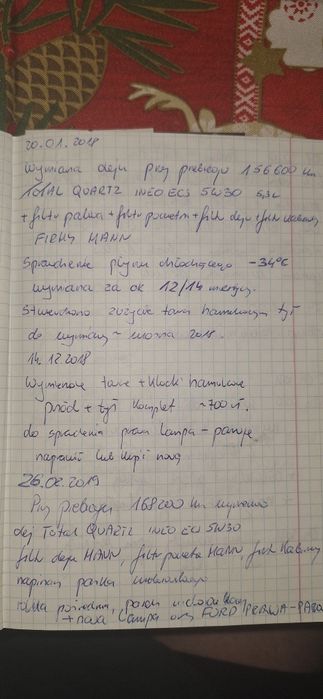 20.01.2018
Wymiana oleju przy przebiegu 156600 km
TOTAL QUARTZ INEO ECS 5W30 5,3L
+ filtr paliwa + filtr powietrza + filtr oleju + filtr kabinowy
FIRMY MANN
Sprawdzenie płynu chłodzącego -34°C
wymiana za ok 12/14 miesięcy.
Stwierdzono zużycie tarcz hamulcowych tył
do wymiany ~ wiosna 2018.
14.12.2018
Wymienione tarcze + klocki hamulcowe
przód + tył komplet ~700 zł.
do sprawdzenia prawa lampa - paruje
naprawić lub kupić nową
26.02.2019
Przy przebiegu 168200 km wymiana
olej Total QUARTZ INEO ECS 5W30
filtr oleju MANN, filtr powietrza MANN filtr kabinowy
napinacz paska
rolka pasek
+ nowa lampa FORD PRAWA-